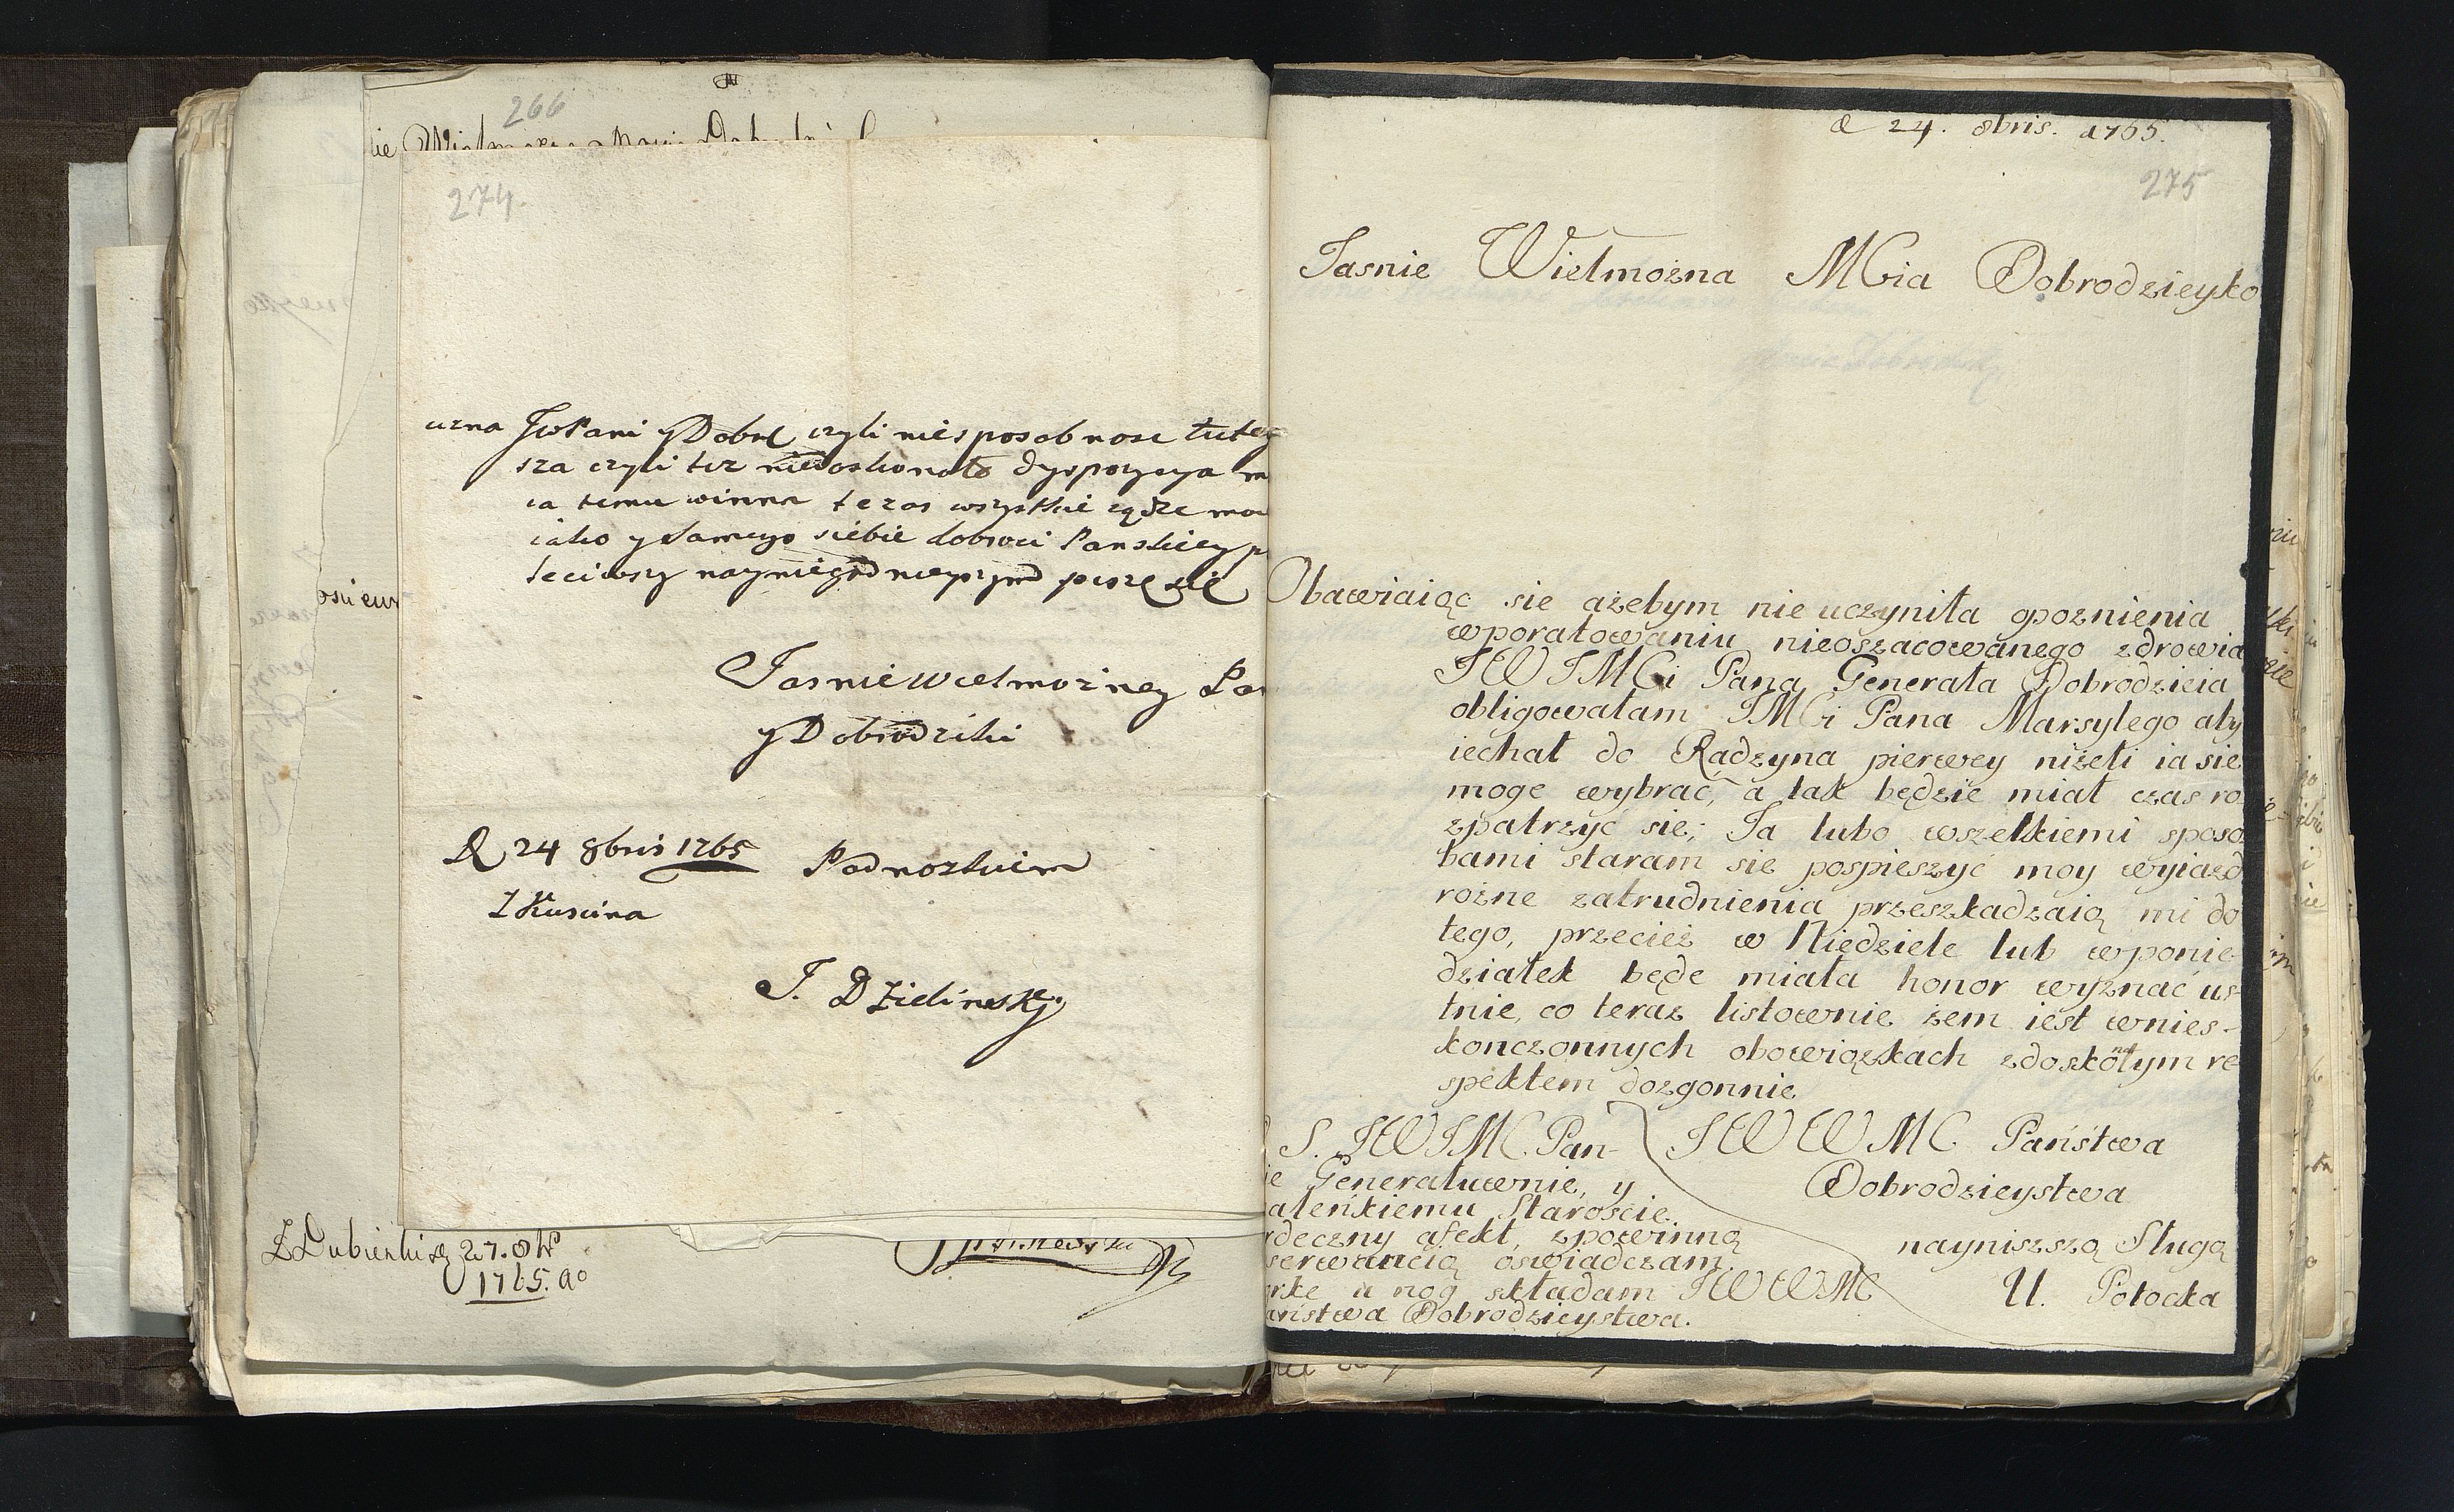 266
274.
uzna JwPani y Dobr czyli niesposobnosc tutey
sza czyli tez niedoskonała dyspozycya
ia temu winna teraz wszystkie
iako y samego siebie dobroci Panskiey
leciwszy nayniegodnieyszym piszę się
Jasnie Wielmożney
y Dobrodziki
D 24 8bris 1765 Podnozkiem
Z Kuscina
J. Dzielinsky
27. 8br
1765. Ao
D 24. 8bris. 1765.
275
Jasnie Wielmożna MCia Dobrodzieyko
Obawiaiąc sie ażebym nie uczyniła opoznienia
wporatowaniu nieoszacowanego zdrowia
JWJMCi Pana Generała Dobrodzieia
obligowałam JMCi Pana Marsylego aby
iechał do Radzyna pierwey niżeli ia sie
moge wybrać, a tak będzie miał czas ro
zpatrzyć sie; Ja lubo wszelkiemi sposo
bami staram sie pospieszyć moy wyiazd
rożne zatrudnienia przeszkadzaią mi do
tego, przecież w Niedziele lub wponie
działek będe miała honor wyznać us-
tnie, co teraz listownie żem iest wnies-
konczonnych obowiązkach zdoskonałym re
spektem dozgonnie
JWWMC Państwa
Dobrodzieystwa
nayniższą Sługą
U. Potocka
S. JWJMC. Pan-
ie Generałuwnie, y
aleńkiemu Staroscie
rdeczny afekt, zpowinną
serwancią oswiadczam.
rke u nog składam JWWMC
aństwa Dobrodzieystwa.